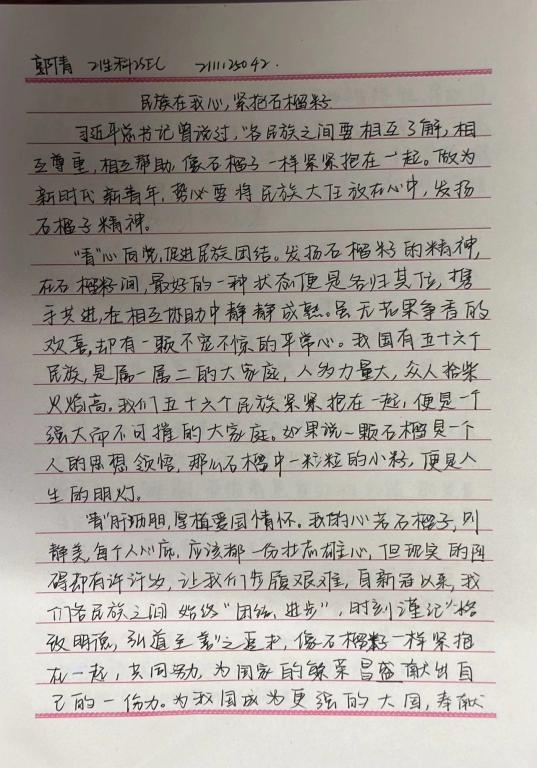 郭倩 21生科2班 2111125042.
民族在我心,紧抱石榴籽
习近平总书记曾说过,“各民族之间要相互了解,相
互尊重,相互帮助,像石榴子一样紧紧抱在一起。做为
新时代新青年,势必要将民族大任放在心中,发扬
石榴子精神。
“青”心向党,促进民族团结。发扬石榴籽的精神,
在石榴籽间,最好的一种状态便是各归其位,携
手共进,在相互协助中静静成熟。虽无花果争香的
欢喜,却有一颗不宠不惊的平常心。我国有五十六个
民族,是属一属二的大家庭,人多力量大,众人拾柴
火焰高。我们五十六个民族紧紧抱在一起,便是一个
强大而不可摧的大家庭。如果说一颗石榴是一个
人的思想领悟,那么石榴中一粒粒的小籽,便是人
生的明灯。
“青”肝沥胆,厚植爱国情怀。我的心若石榴子,则
静美,每个人心底,应该都一份壮志雄心,但现实的阻
碍却有许许多,让我们步履艰难,自新冠以来,我
们各民族之间始终“团结、进步”,时刻谨记“格
致明德,弘道至善”之要求,像石榴籽一样紧抱
在一起,共同努力,为国家的繁荣昌盛献出自
己的一份力。为我国成为更强的大国,奉献